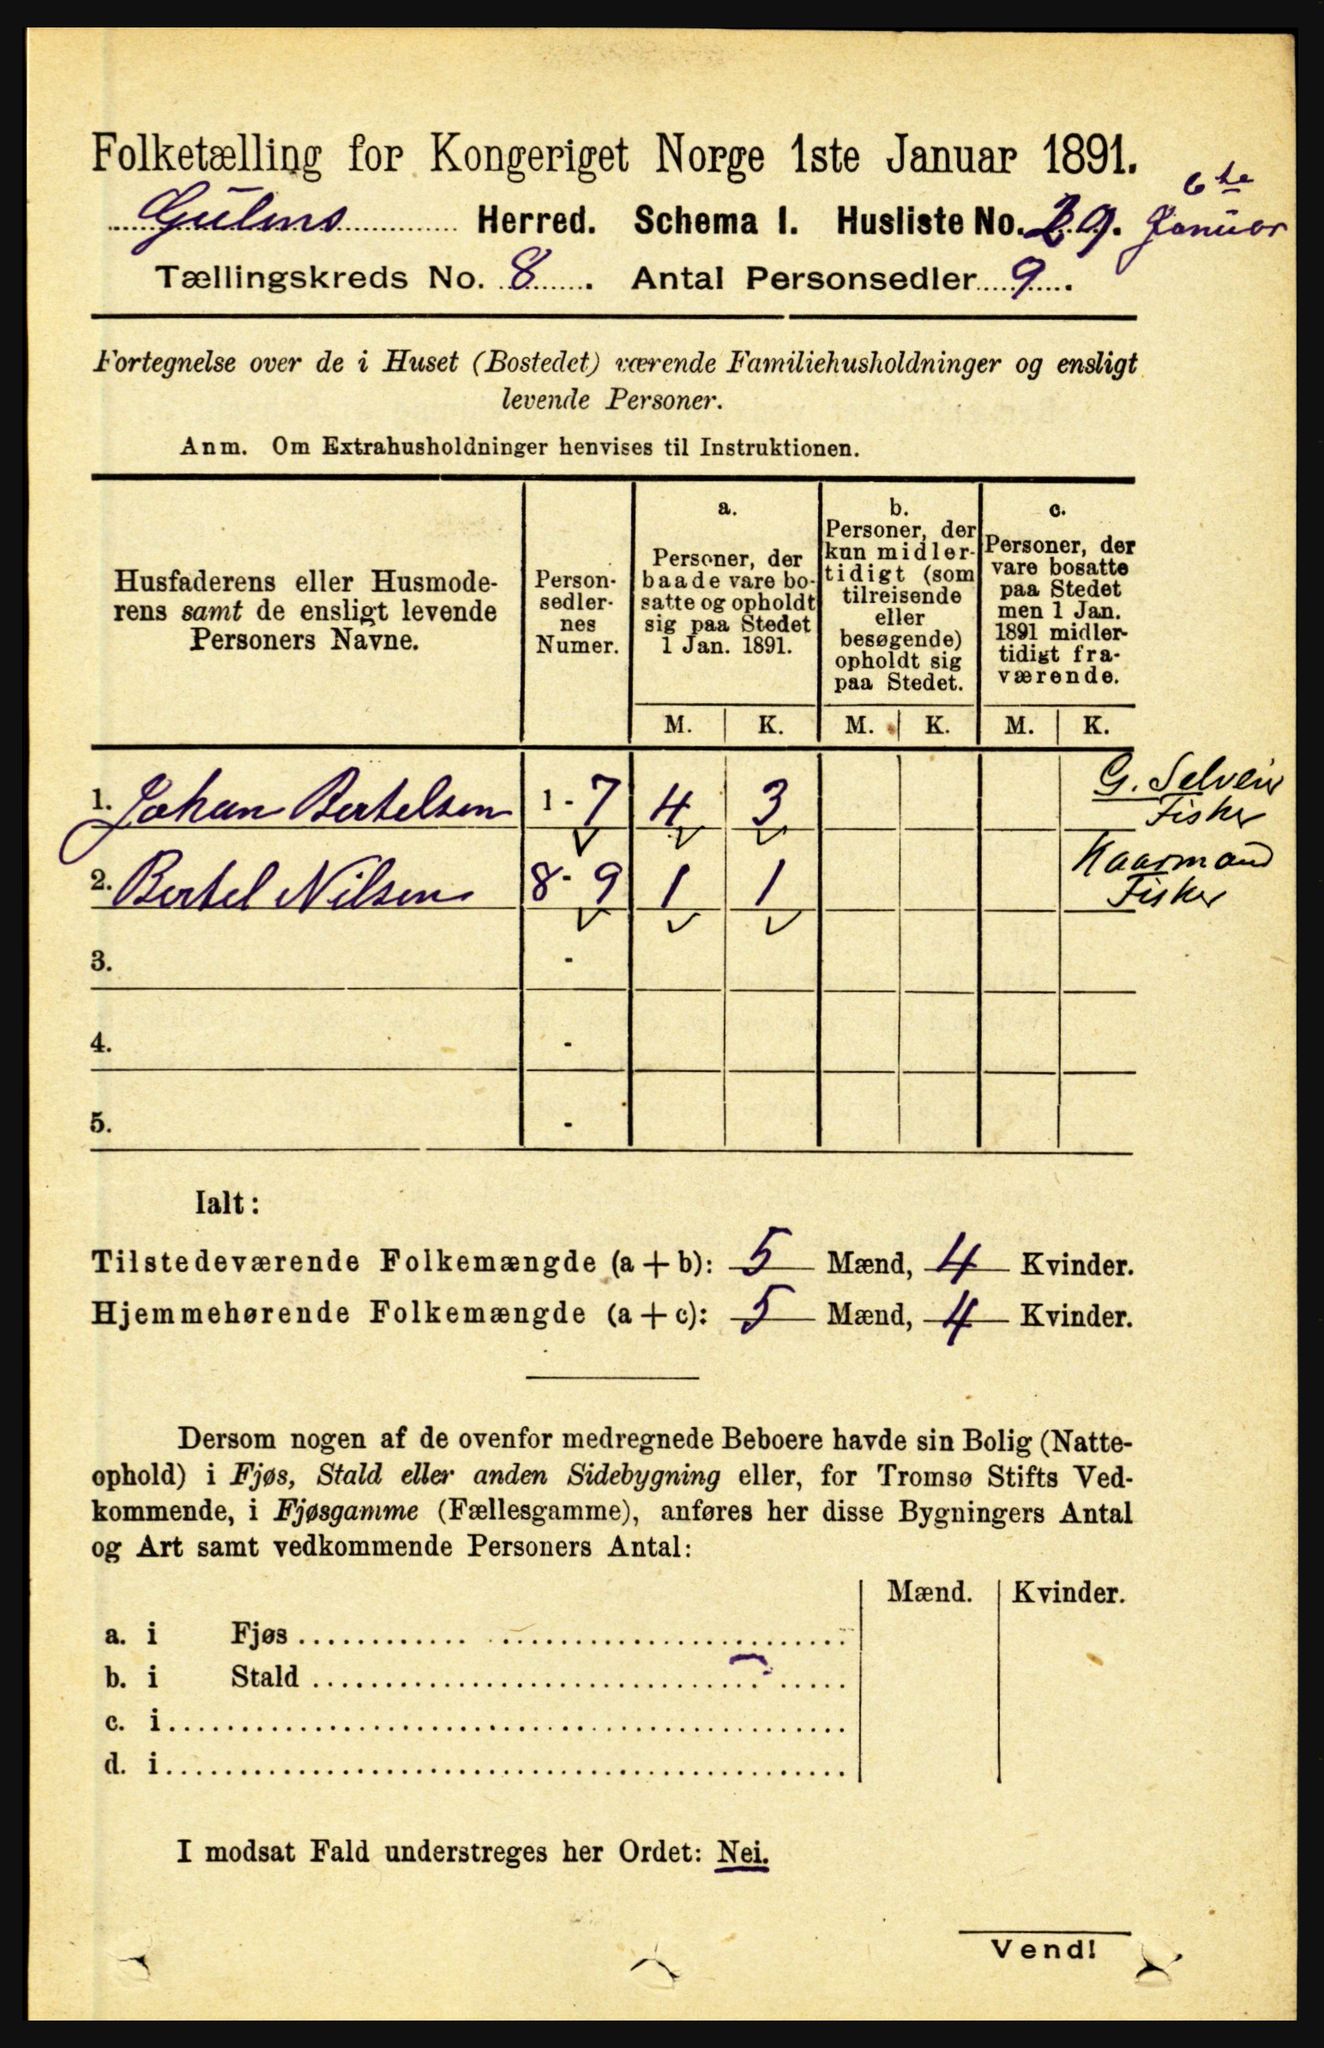 Folketælling for Kongeriget Norge 1ste Januar 1891.
6te Januar
Gulens Herred. Schema I. Husliste No. 29.
Tællingskreds No. 8. Antal Personsedler 9.
Fortegnelse over de i Huset (Bostedet) værende Familiehusholdninger og ensligt
levende Personer.
Anm. Om Extrahusholdninger henvises til Instruktionen.
Husfaderens eller Husmode-
rens samt de ensligt levende
Personers Navne.
Person-
sedler-
nes
Numer.
a.
Personer, der
baade vare bo-
satte og opholdt
sig paa Stedet
1 Jan. 1891.
b.
Personer, der
kun midler-
tidigt (som
tilreisende
eller
besøgende)
opholdt sig
paa Stedet.
c.
Personer, der
vare bosatte
paa Stedet
men 1 Jan.
1891 midler-
tidigt fra-
værende.
M. K. M. K. M. K.
1. Johan Bertelsen 1 - 7 4 3 G. Selveier
Fisker
2. Bertel Nilsen 8 - 9 1 1 Kaarmand
Fisker
3. -
4. -
5. -
Ialt:
Tilstedeværende Folkemængde (a + b): 5 Mænd, 4 Kvinder.
Hjemmehørende Folkemængde (a + c): 5 Mænd, 4 Kvinder.
Dersom nogen af de ovenfor medregnede Beboere havde sin Bolig (Natte-
ophold) i Fjøs, Stald eller anden Sidebygning eller, for Tromsø Stifts Ved-
kommende, i Fjøsgamme (Fællesgamme), anføres her disse Bygningers Antal
og Art samt vedkommende Personers Antal:
Mænd. Kvinder.
a. i Fjøs
b. i Stald
c. i
d. i
I modsat Fald understreges her Ordet: Nei.
Vend!